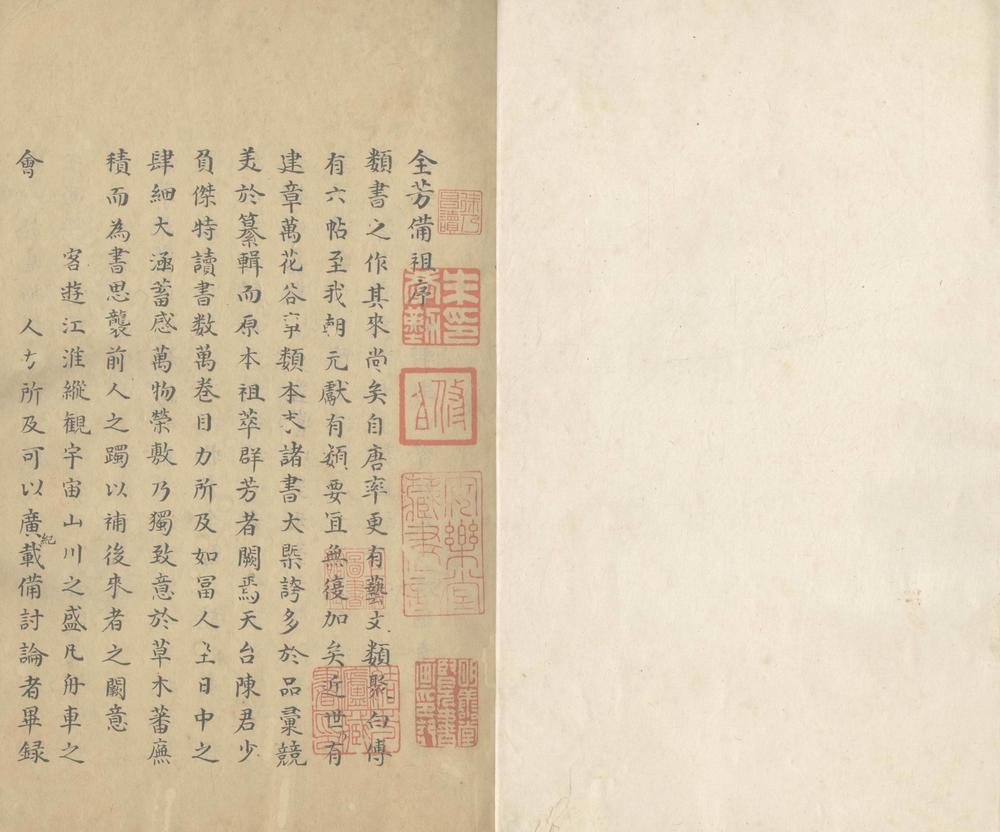 全芳備祖序
類書之作其來尚矣自唐率更有藝文類聚白傅
有六帖至我朝元獻有類要宜無復加矣近世有
建章萬花谷事類本末諸書大槩誇多於品彙競
美於纂輯而原本祖萃群芳者闕焉天台陳君少
負傑特讀書数萬卷目力所及如冨人主日中之
肆細大涵蓄感萬物榮敷乃獨致意於草木蕃廡
積而為書思襲前人之躅以補後來者之闕意
客遊江淮縱観宇宙山川之盛凡舟車之
會
人力所及可以廣載備討論者畢録
紀
安樂堂
藏書記
明善堂
覽書
畫印記